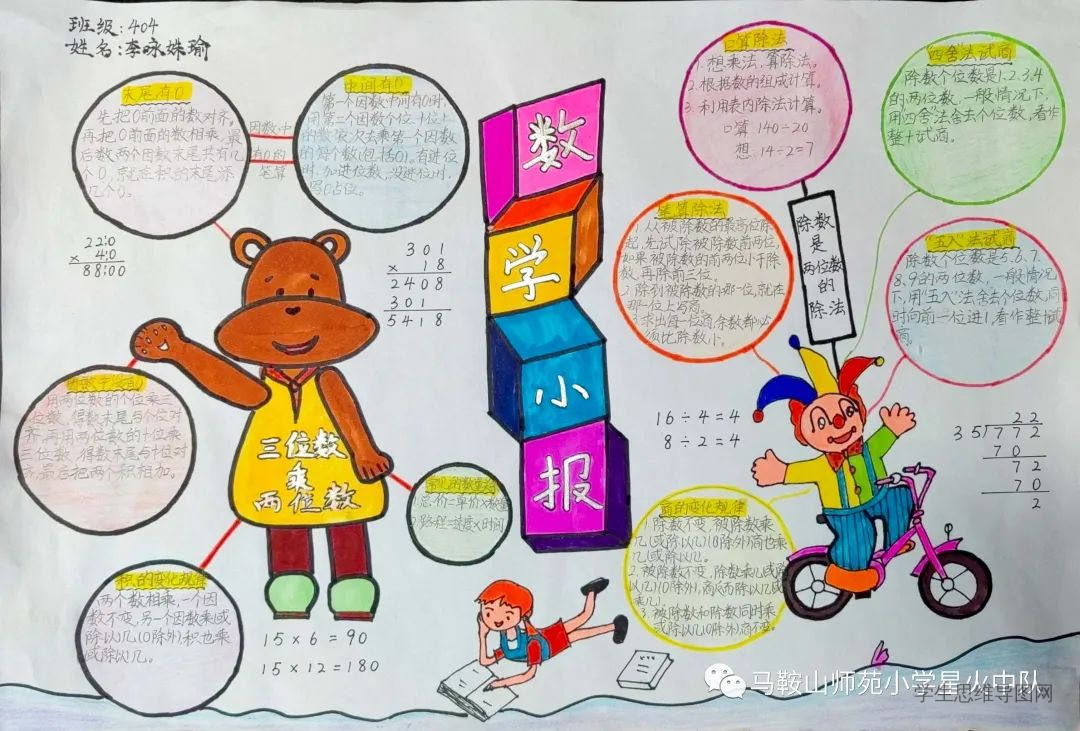 班级:404
姓名:李咏姝瑜
末尾有0
先把0前面的数对齐。
再把0前面的数相乘,最
后数两个因数末尾共有几
个0,就在积的末尾添
几个0。
因数中
有0的
笔算
中间有0
第一个因数中间有0时,
用第二个因数个位十位上
的数依次去乘第一个因数
的每个数(包括0),有进位
时,加进位数,没进位时,
写0占位。
220
× 40
8800
301
× 18
2408
301
5418
用两位数的个位乘三
位数,得数末尾与个位对
齐,再用两位数的十位乘
三位数,得数末尾与十位对
齐,最后把两个积相加。
三位数
乘
两位数
常见的数量
1.总价=单价×数量
2.路程=速度×时间
积的变化规律
两个数相乘,一个因
数不变,另一个因数乘(或
除以)几(0除外)积也乘
或除以几。
15×6=90
15×12=180
数
学
小
报
口算除法
1.想乘法,算除法。
2.根据数的组成计算。
3.利用表内除法计算。
口算 140÷20
想 14÷2=7
四舍法试商
除数个位数是1.2.3.4
的两位数,一般情况下,
用"四舍"法舍去个位数,看作
整十试商。
笔算除法
1.从被除数的最高位除
起,先试除被除数前两位,
如果被除数的前两位小于除
数,再除前三位。
2.除到被除数的哪一位,就在
那一位上写商。
求出每一位商,余数都必
须比除数小。
除数
是
两位数
的
除法
"五入"法试商
除数个位数是5.6.7.
8.9的两位数,一般情况
下,用"五入"法舍去个位数,同
时向前一位进1,看作整十试
商。
16÷4=4
8÷2=4
22
35
772
70
72
70
2
商的变化规律
1.除数不变,被除数乘
几(或除以几)(0除外)商也乘
几(或除以几)。
2.被除数不变,除数乘几(或除
以几)(0除外),商反而除以几或
乘几。
3.被除数和除数同时乘
或除以几(0除外),商不变。
马鞍山师苑小学星火中队
学生思维导图网